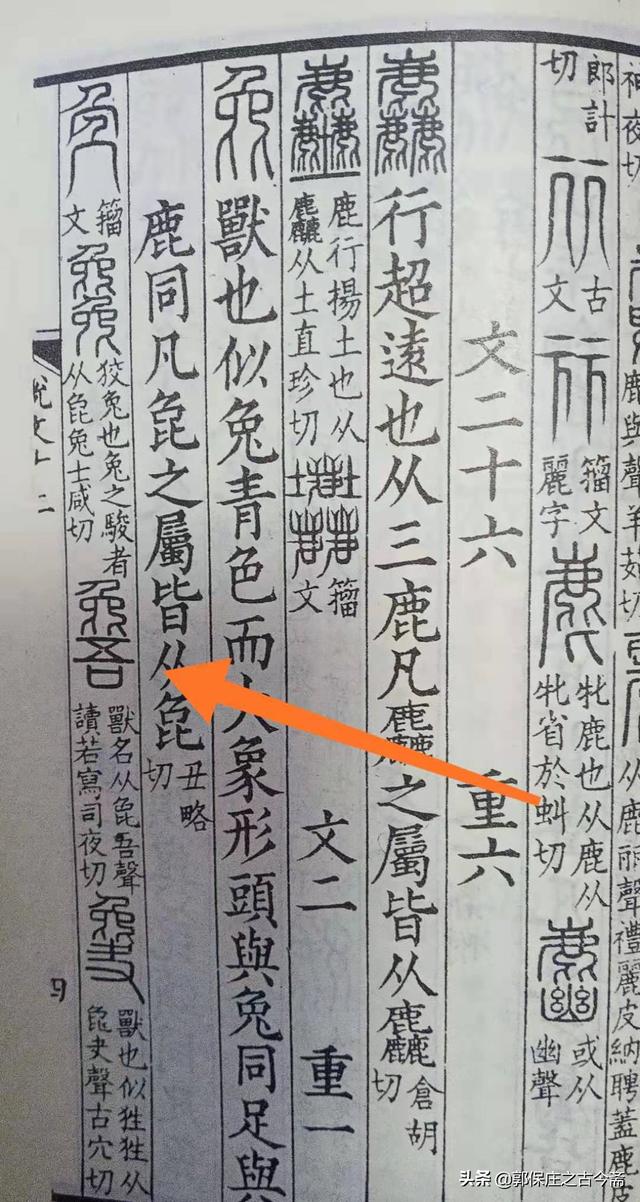 神夜切
鹿與聲羊茹切
从鹿丽聲禮麗皮納聘蓋鹿
郎計切
古文
籀文麗字
牝鹿也从鹿从牝省於虯切
或从幽聲
文二十六 重六
麤 行超遠也从三鹿凡麤之屬皆从麤倉胡切
鹿行揚土也从麤从土直珍切
籀文
文二 重一
㲋 獸也似兔青色而大象形頭與兔同足與
鹿同凡㲋之屬皆从㲋丑略切
籀文
狡兔也兔之駿者从㲋兔士咸切
獸名从㲋吾聲讀若寫司夜切
獸也似狌狌从㲋夬聲古穴切
头条 @郭保庄之古今斋